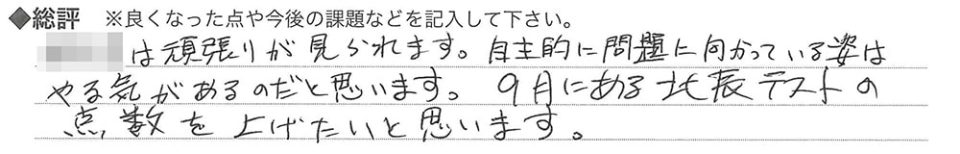 ◆総評 ※良くなった点や今後の課題などを記入して下さい。
は頑張りが見られます。自主的に問題に向かっている姿は
やる気があるのだと思います。9月にある北辰テストの
点数を上げたいと思います。